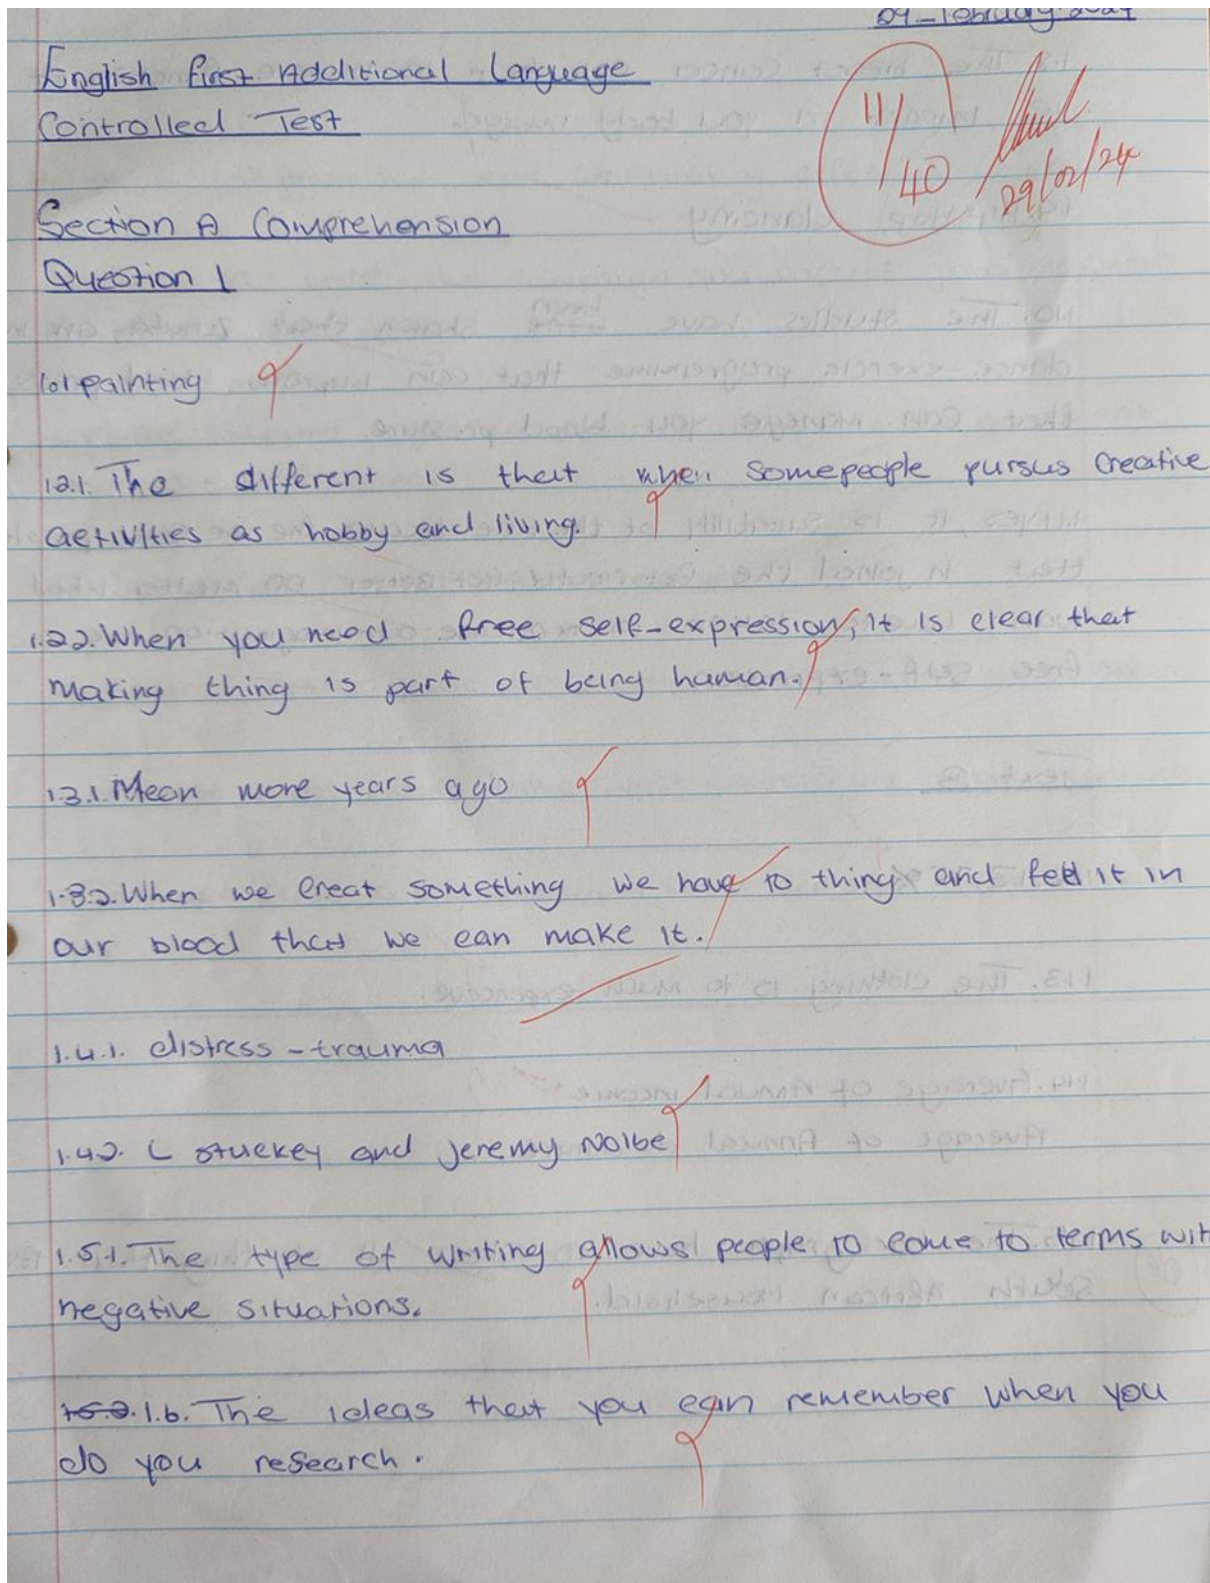 English First Additional Language
Controlled Test
11/40
29/02/24
Section A Comprehension
Question 1
1.1 painting
1.2.1. The different is that when somepeople pursus creative
activities as hobby and living.
1.2.2. When you need free self-expression, it is clear that
making thing is part of being human.
1.3.1. Mean more years ago
1.3.2. When we creat something we have to thing and feel it in
our blood that we can make it.
1.4.1. distress - trauma
1.4.2. L stuckey and Jeremy Nolbe
1.5.1. The type of writing allows people to come to terms wit
negative situations.
1.5.2. 1.6. The ideas that you can remember when you
do you research.